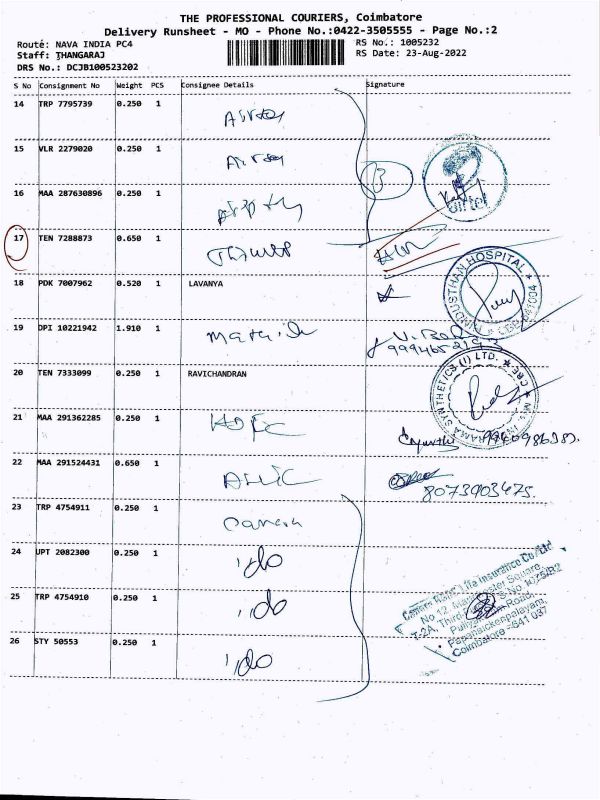 THE PROFESSIONAL COURIERS, Coimbatore
Delivery Runsheet - MO - Phone No.:0422-3505555 - Page No.:2
Route: NAVA INDIA PC4 RS No.: 1005232
Staff: THANGARAJ RS Date: 23-Aug-2022
DRS No.: DCJB100523202
S No Consignment No Weight PCS Consignee Details Signature
14 TRP 7795739 0.250 1
15 VLR 2279020 0.250 1
16 MAA 287630896 0.250 1
airtel
17 TEN 7288873 0.650 1
18 PDK 7007962 0.520 1 LAVANYA
HINDUSTHAN HOSPITAL
19 DPI 10221942 1.910 1
20 TEN 7333099 0.250 1 RAVICHANDRAN
SYNTHETICS (I) LTD. CBE
21 MAA 291362285 0.250 1 HDFC
22 MAA 291524431 0.650 1
8073903475.
23 TRP 4754911 0.250 1
24 UPT 2082300 0.250 1 'do
25 TRP 4754910 0.250 1 'do
26 STY 50553 0.250 1 'do
Life Insurance Co Ltd
No 12,
Square,
T-2A, Third
S No 1075/B2
Road,
Pappanaickenpalayam,
Coimbatore - 641 037